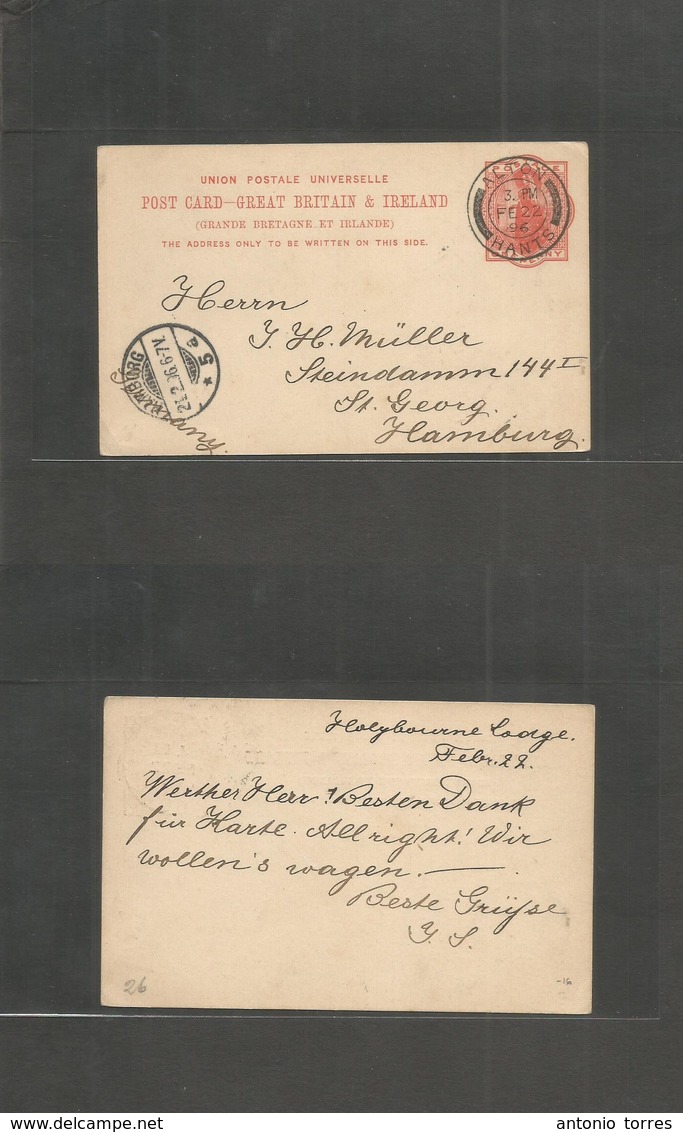 UNION POSTALE UNIVERSELLE
POST CARD—GREAT BRITAIN & IRELAND
(GRANDE BRETAGNE ET IRLANDE)
THE ADDRESS ONLY TO BE WRITTEN ON THIS SIDE.
ALTON
3. PM
FE 22
96
HANTS
Herrn
J. H. Müller
Steindamm 144 I
St. Georg.
Hamburg.
Germany.
HAMBURG
5 a
Holybourne Lodge.
Febr. 22.
Werther Herr! Besten Dank
für Karte. All right! Wir
wollen's wagen. —
Beste Grüße
J. S.
26
-16
antonio torres